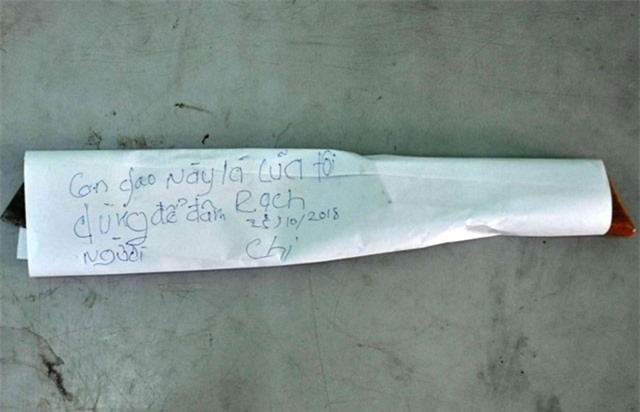 Con dao này là của tôi
dùng để đâm Rạch
25/10/2018
người Chi